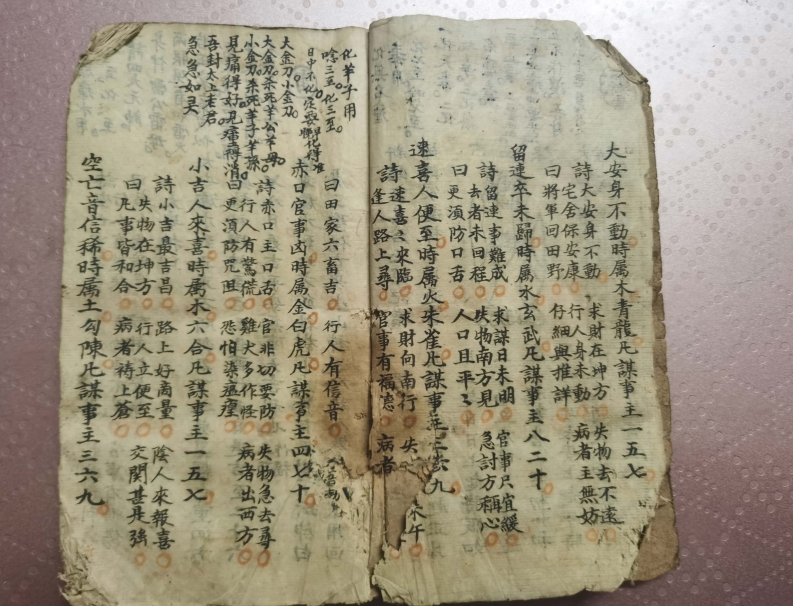 大安身不動時属木青龍凢謀事主一五七
詩大安身不動 求財在坤方 失物去不遠
宅舍保安康 行人身未動 病者主無妨
曰將軍回田野 仔細與推詳
留連卒未歸時属水玄武凢謀事主八二十
詩留連事難成 求謀日未明 官事只宜緩
去者未回程 失物南方見 急討方稱心
曰更須防口舌 人口且平々
速喜人便至時属火朱雀凢謀事主三六九
詩速喜々來臨 求財向南行 失 未午
逢人路上尋 官事有福德 病者
曰田家六畜吉 行人有信音
赤口官事凶時属金白虎凢謀事主四七十
詩赤口主口舌 官非切要防 失物急去尋
行人有驚慌 雞犬多作怪 病者出西方
曰更須防咒咀 恐怕染瘟㾮
小吉人來喜時属水六合凢謀事主一五七
詩小吉最吉昌 路上好商量 陰人來報喜
失物在坤方 行人立便至 交関甚是強
曰凢事皆和合 病者祷上蒼
空亡音信稀時属土勾陳凢謀事主三六九
化羊子用
唸三五化三五
大金刀小金刀
大金刀杀死羊公羊母
小金刀杀死羊子羊孫
見痛得好見
吾封太上老君
急急如